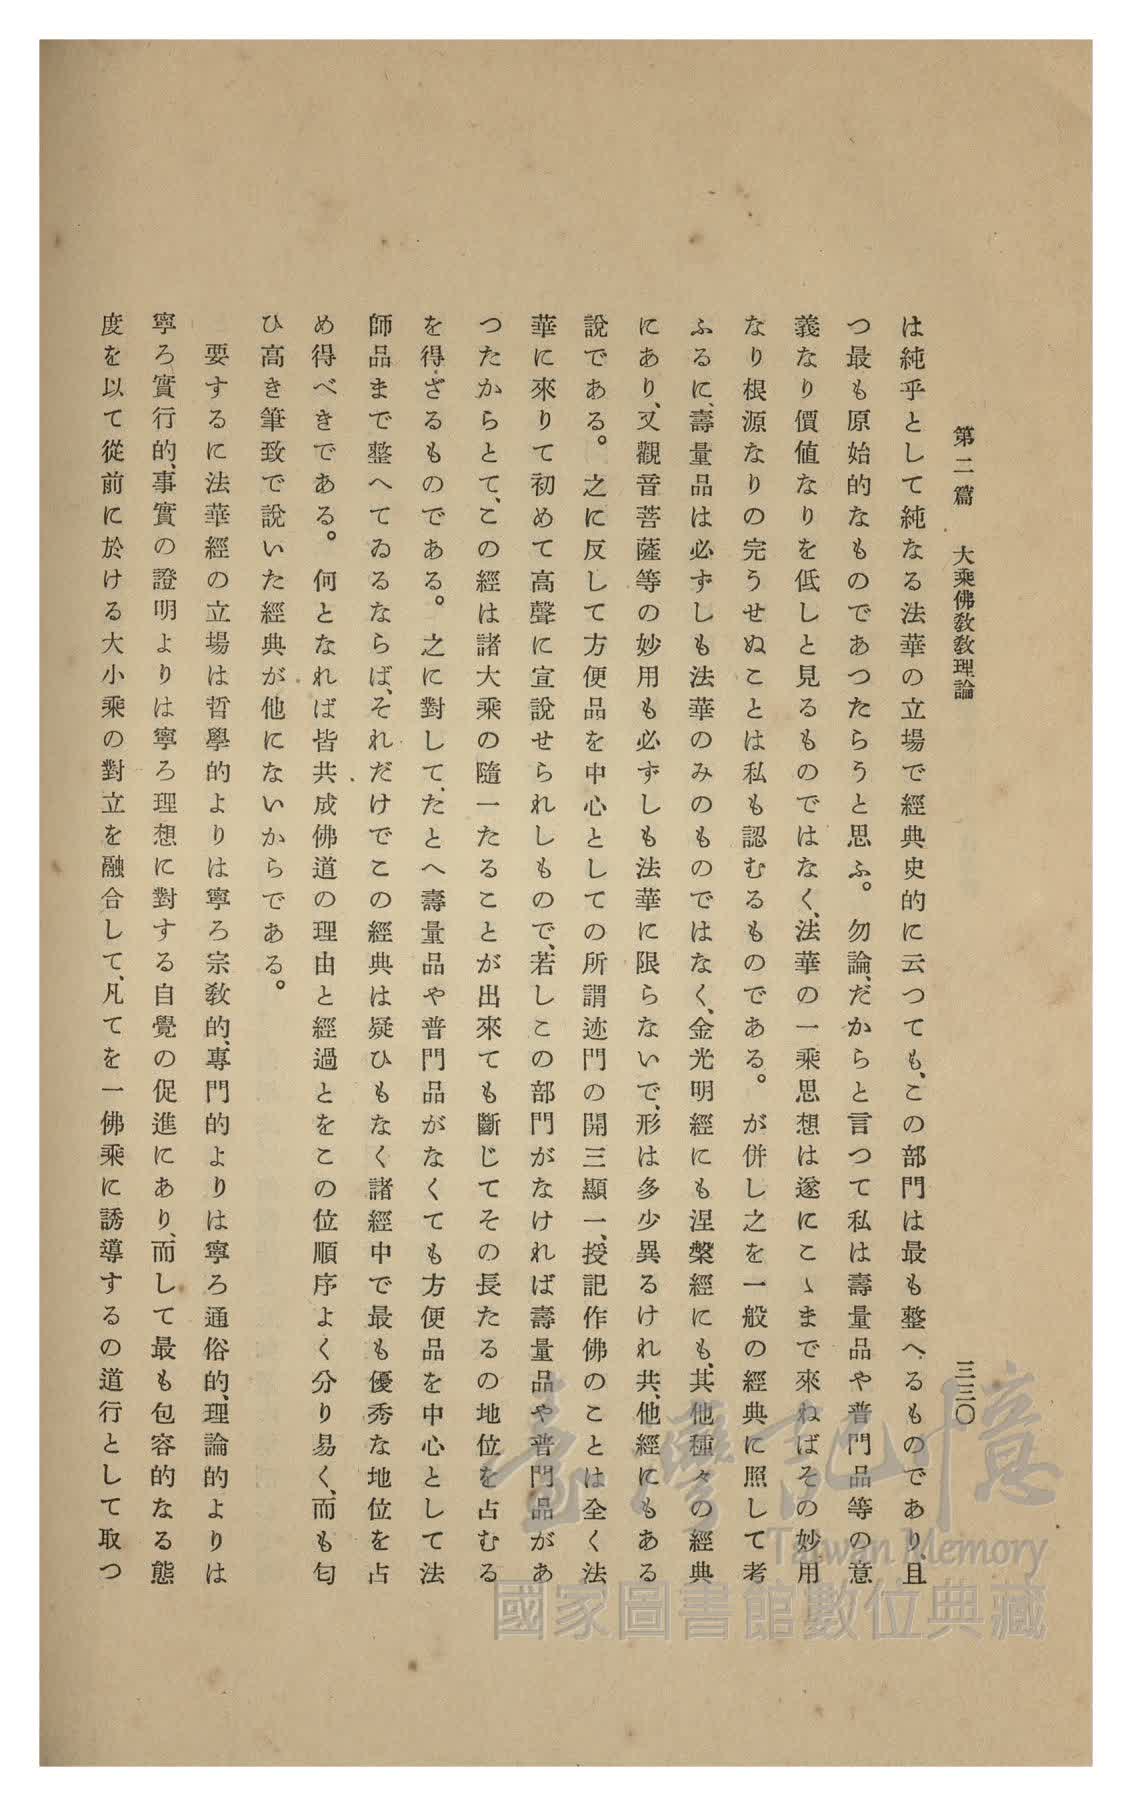 第二篇　大乘佛教教理論
三三〇
は純乎として純なる法華の立場で經典史的に云つても、この部門は最も整へるものであり、且
つ最も原始的なものであつたらうと思ふ。勿論、だからと言つて私は壽量品や普門品等の意
義なり價値なりを低しと見るものではなく、法華の一乘思想は遂にこゝまで來ねばその妙用
なり根源なりの完うせぬことは私も認むるものである。が併し之を一般の經典に照して考
ふるに、壽量品は必ずしも法華のみのものではなく、金光明經にも涅槃經にも、其他種々の經典
にあり、又觀音菩薩等の妙用も必ずしも法華に限らないで、形は多少異るけれ共、他經にもある
說である。之に反して方便品を中心としての所謂迹門の開三顯一、授記作佛のことは全く法
華に來りて初めて高聲に宣說せられしもので、若しこの部門がなければ壽量品や普門品があ
つたからとて、この經は諸大乘の隨一たることが出來ても斷じてその長たるの地位を占むる
を得ざるものである。之に對して、たとへ壽量品や普門品がなくても方便品を中心として法
師品まで整へてゐるならば、それだけでこの經典は疑ひもなく諸經中で最も優秀な地位を占
め得べきである。何となれば皆共成佛道の理由と經過とをこの位順序よく分り易く、而も匂
ひ高き筆致で說いた經典が他にないからである。
要するに法華經の立場は哲學的よりは寧ろ宗敎的、專門的よりは寧ろ通俗的、理論的よりは
寧ろ實行的、事實の證明よりは寧ろ理想に對する自覺の促進にあり、而して最も包容的なる態
度を以て從前に於ける大小乘の對立を融合して、凡てを一佛乘に誘導するの道行として取つ
臺灣記憶
Taiwan Memory
國家圖書館數位典藏